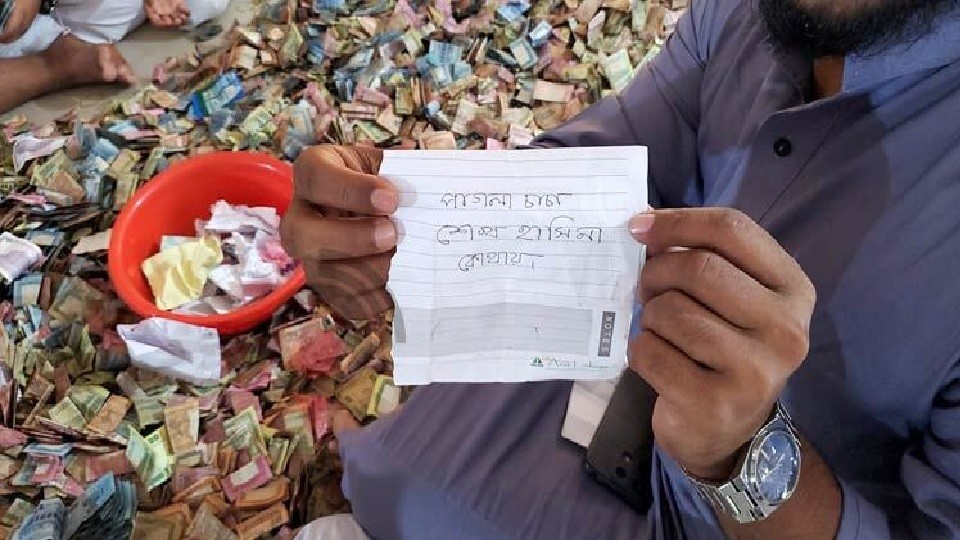 পাগলা চাচা
শেখ হাসিনা
কোথায়।
NOTES